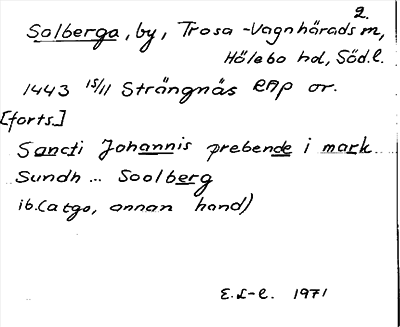 2.
Solberga, by, Trosa-Vagnhärads m,
Hölebo hd, Södl.
1443 15/11 Strängnäs RAp or.
[forts.]
Sancti Johannis prebende i mark
Sundh ... Soolberg
ib. (atgo, annan hand)
E.L-l. 1971